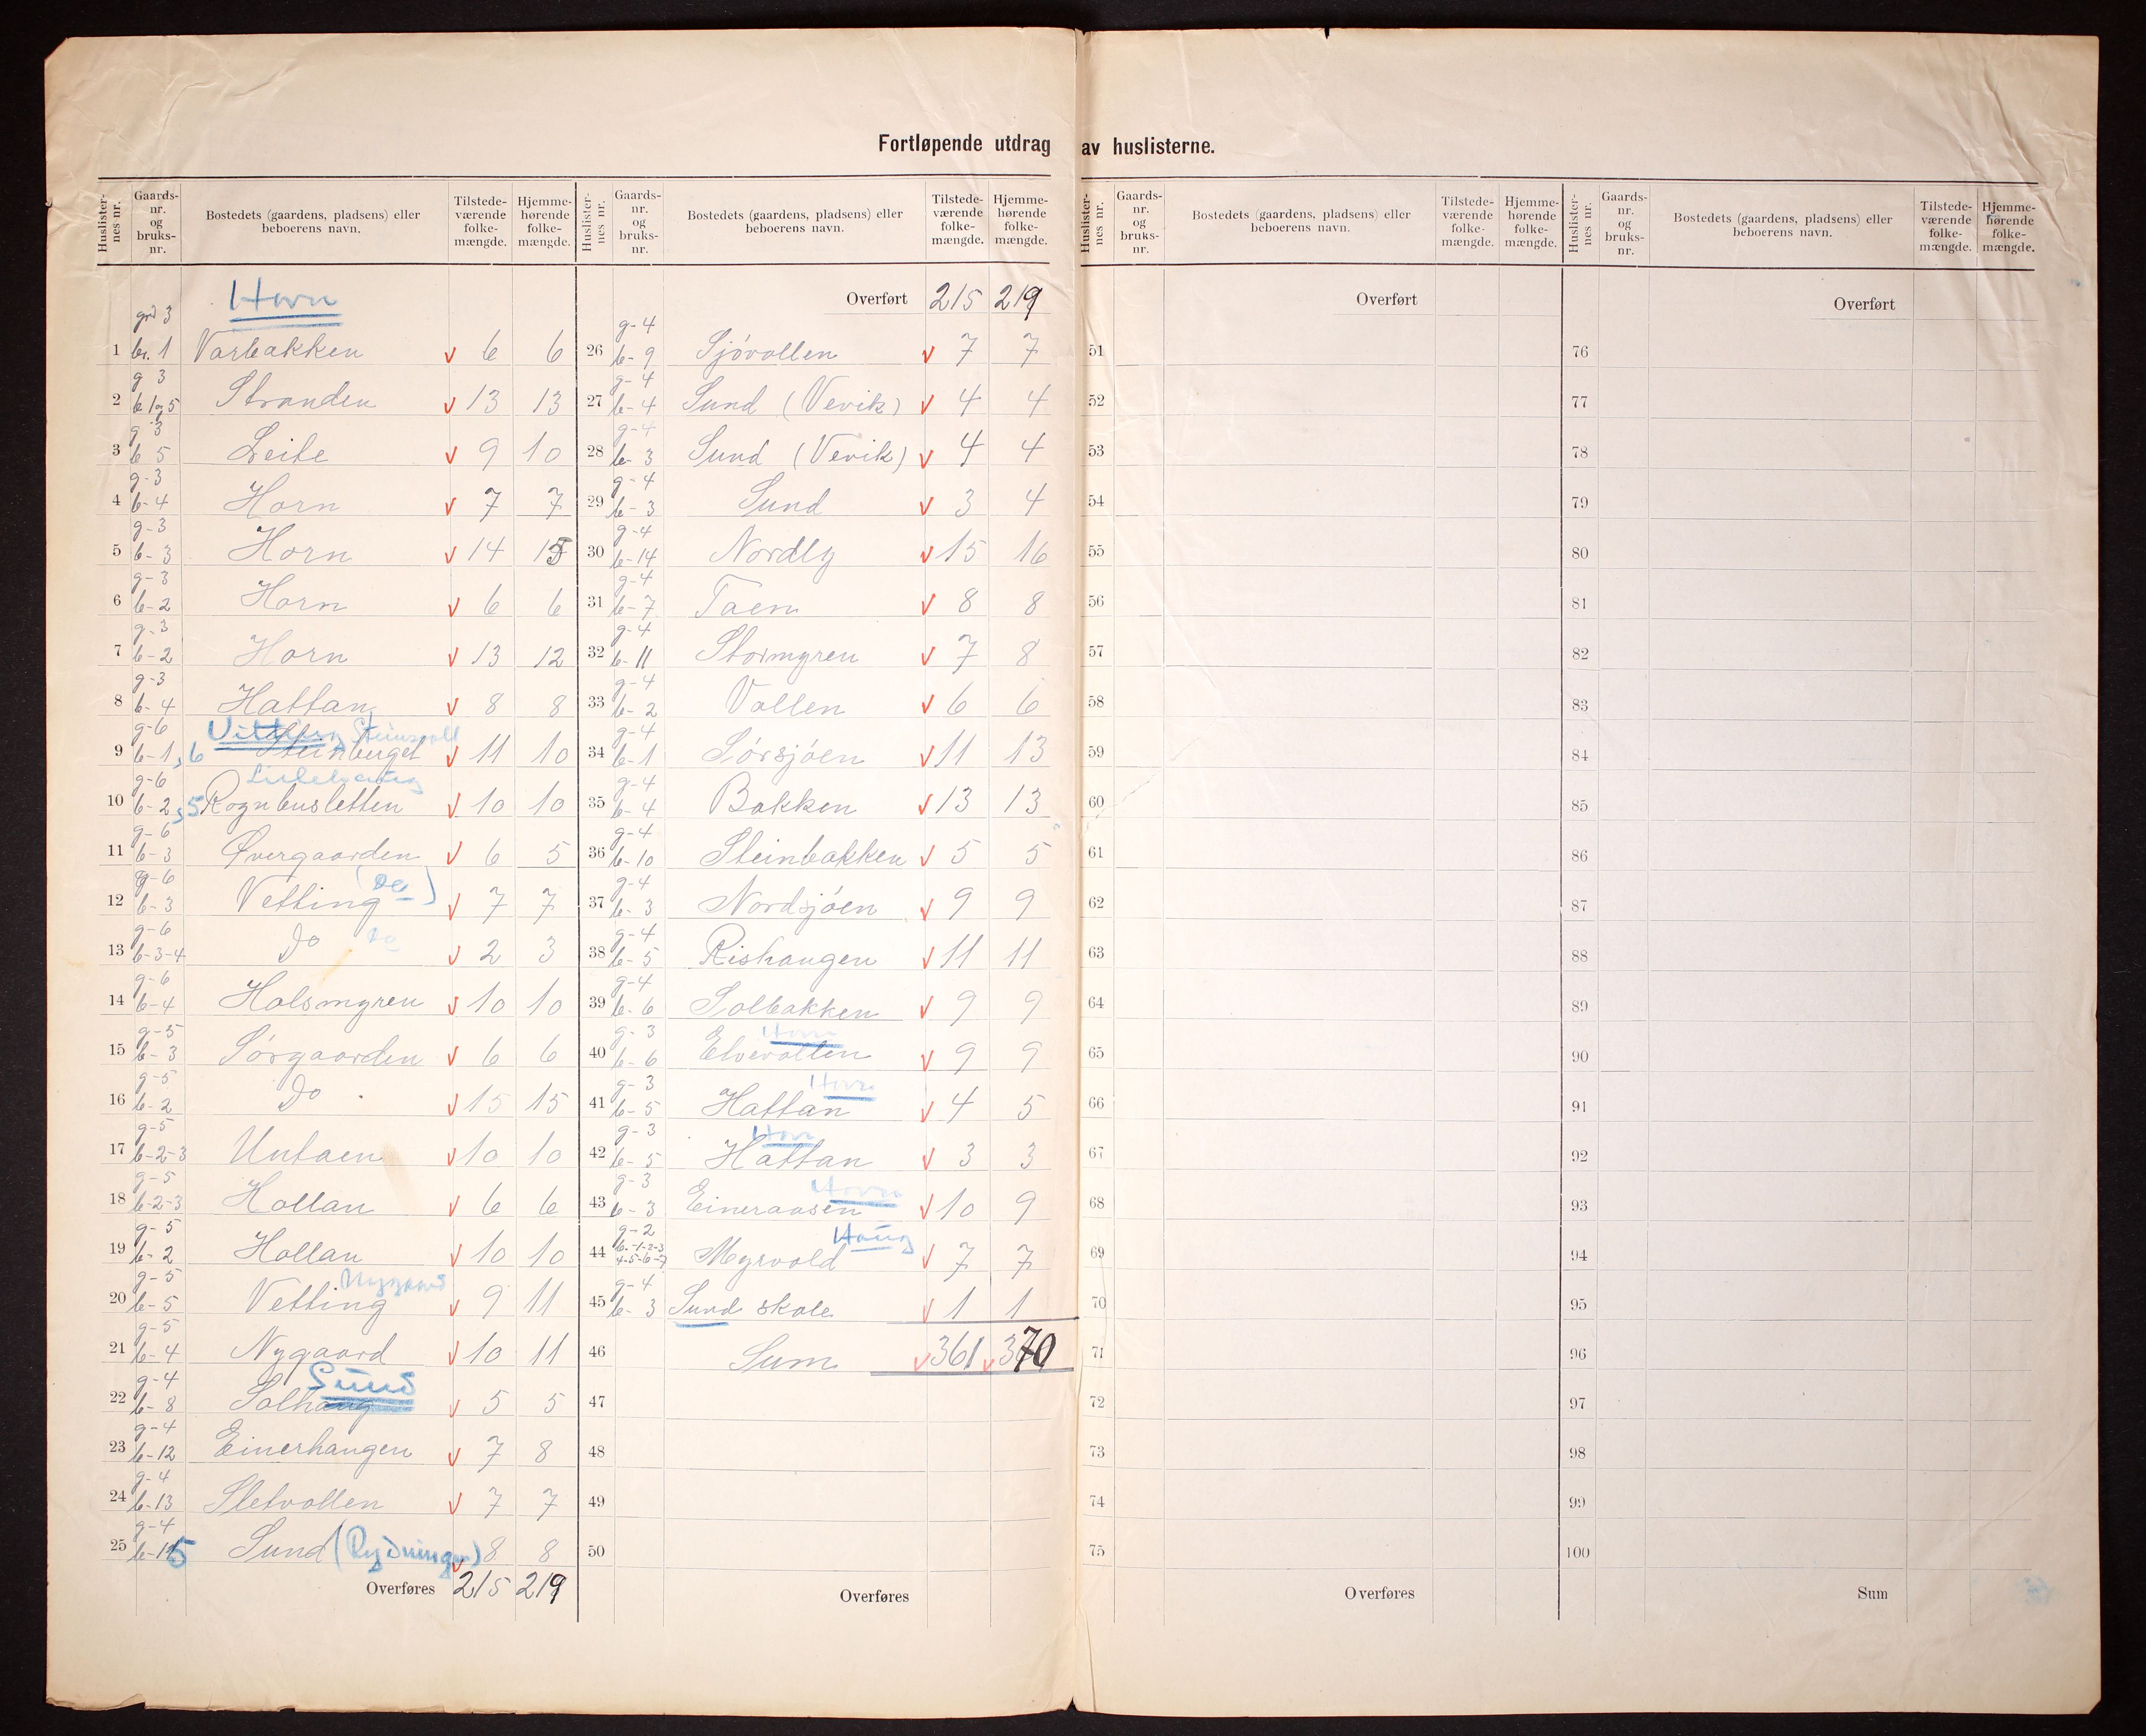 Fortløpende utdrag av huslisterne.
Huslister-nes nr. Gaards-nr. og bruks-nr. Bostedets (gaardens, pladsens) eller beboerens navn. Tilstede-værende folke-mængde. Hjemme-hørende folke-mængde.
Horn
1 grd 3 br. 1 Varbakken v 6 6
2 g 3 b 1 og 5 Stranden v 13 13
3 g 3 b 5 Leite v 9 10
4 g-3 b-4 Horn v 7 7
5 g-3 b-3 Horn v 14 15
6 g-3 b-2 Horn v 6 6
7 g-3 b-2 Horn v 13 12
8 g-3 b-4 Hattan v 8 8
Vitting Steinsvoll
9 g-6 b-1,6 Steinberget v 11 10
Lillehaug
10 g-6 b-2,5 Rognbusletten v 10 10
11 g-6 b-3 Øvergaarden v 6 5
12 g-6 b-3 Vetting (de) v 7 7
13 g-6 b-3-4 Do do v 2 3
14 g-6 b-4 Halsmyren v 10 10
15 g-5 b-3 Sørgaarden v 6 6
16 g-5 b-2 Do v 15 15
17 g-5 b-2-3 Untaen v 10 10
18 g-5 b-2-3 Hollan v 6 6
19 g-5 b-2 Hollan v 10 10
Nygaard
20 g-5 b-5 Vetting v 9 11
21 g-5 b-4 Nygaard v 10 11
Sund
22 g-4 b-8 Solhaug v 5 5
23 g-4 b-12 Einerhaugen v 7 8
24 g-4 b-13 Sletvollen v 7 7
25 g-4 b-15 Sund (Rydningen) v 8 8
Overføres 215 219
Huslister-nes nr. Gaards-nr. og bruks-nr. Bostedets (gaardens, pladsens) eller beboerens navn. Tilstede-værende folke-mængde. Hjemme-hørende folke-mængde.
Overført 215 219
26 g-4 b-9 Sjøvollen v 7 7
27 g-4 b-4 Sund (Vevik) v 4 4
28 g-4 b-3 Sund (Vevik) v 4 4
29 g-4 b-3 Sund v 3 4
30 g-4 b-14 Nordly v 15 16
31 g-4 b-7 Taem v 8 8
32 g-4 b-11 Stormyren v 7 8
33 g-4 b-2 Vollen v 6 6
34 g-4 b-1 Sørsjøen v 11 13
35 g-4 b-4 Bakken v 13 13
36 g-4 b-10 Steinbakken v 5 5
37 g-4 b-3 Nordsjøen v 9 9
38 g-4 b-5 Rishaugen v 11 11
39 g-4 b-6 Solbakken v 9 9
Horn
40 g-3 b-6 Elvevollen v 9 9
Horn
41 g-3 b-5 Hattan v 4 5
Horn
42 g-3 b-5 Hattan v 3 3
Horn
43 g-3 b-3 Eineraasen v 10 9
Haug
44 g-2 b-1-2-3 4-5-6-7 Myrvold v 7 7
45 g-4 b-3 Sund skole v 1 1
46 Sum v 361 v 370
47
48
49
50
Overføres
Huslister-nes nr. Gaards-nr. og bruks-nr. Bostedets (gaardens, pladsens) eller beboerens navn. Tilstede-værende folke-mængde. Hjemme-hørende folke-mængde.
Overført
51
52
53
54
55
56
57
58
59
60
61
62
63
64
65
66
67
68
69
70
71
72
73
74
75
Overføres
Huslister-nes nr. Gaards-nr. og bruks-nr. Bostedets (gaardens, pladsens) eller beboerens navn. Tilstede-værende folke-mængde. Hjemme-hørende folke-mængde.
Overført
76
77
78
79
80
81
82
83
84
85
86
87
88
89
90
91
92
93
94
95
96
97
98
99
100
Sum